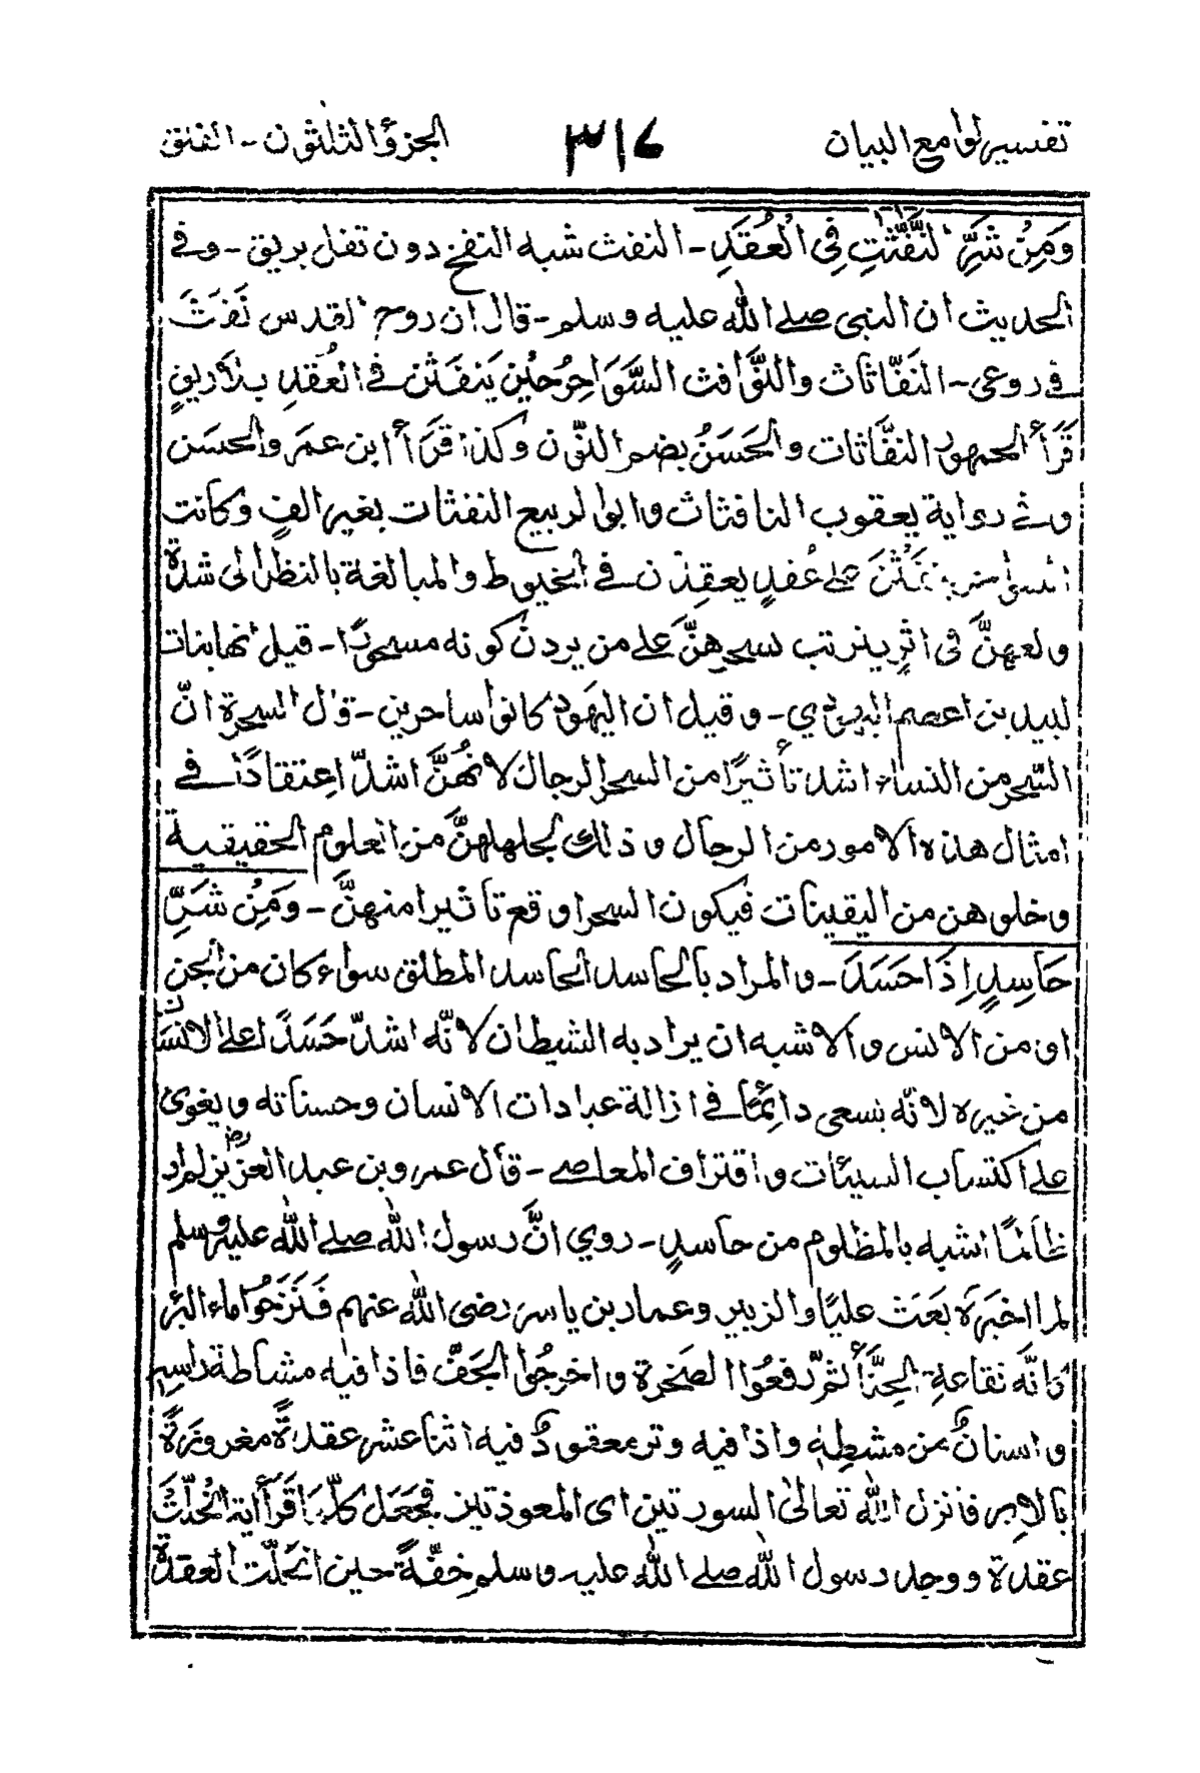 تفسير لوامع البيان ٣١٦ الجزؤ الثلثون - الفلق
وَمِنْ شَرِّ النَّفّٰثٰتِ فِي الْعُقَدِ - النفث شبه النفخ دون تفل بريق - وفي
الحديث ان النبي صلى الله عليه وسلم - قال ان روح القدس نَفَثَ
في روعي - النَفّاثات والنَّوَّافث السَّوَاحِرُ حِيْن يَنفَثن في العُقدِ بلا ريقٍ
قَرَأَ الجمهور النفَّاثات والحَسَنُ بضم النّون وكذا قَرَأ ابن عمَرَ والحسَن
وفي رواية يعقوب النافثاث وابوالربيع النفثات بغير الفٍ وكانت
على عُقدٍ يعقِدن في الخيوط والمبالغة بالنظر الى شدة
ولعهنَّ في اثرٍ يترتب لسحرهنَّ على من يردن كونه مسحورًا - قيل انها بنات
لبيد بن اعصم اليهودي - وقيل ان اليهود كانوا ساحرين - قال السحرة انّ
السّحر من النساء اشد تأثيرًا من السحر الرجال لانهُنَّ اشدّ اعِتقادًا في
امثال هاذه الامور من الرجال وذلك لجهلهنَّ من العلوم الحقيقية
وخلوهن من اليقينات فيكون السحر اوقع تاثيرا منهنَّ - وَمِنْ شَرِّ
حَاسِدٍ اِذَا حَسَدَ - والمراد بالحاسد الحاسد المطلق سواء كان من الجن
او من الانس والاشبه ان يراد به الشيطان لانّه اشدّ حَسَدًا على الانسان
من غيره لانّه يسعى دائِمًا في ازالة عبادات الانسان وحسناته ويغوى
على اكتساب السيئات واقتراف المعاصي - قال عمر وبن عبد العزيز رض لم ار
ظالمًا اشبه بالمظلوم من حاسدٍ - روي انَّ رسول الله صلى الله عليه وسلم
لما اخبَرَه بَعَث عليًا والزبير وعمار بن ياسر رضى الله عنهم فَنَزَحُوا ماء البئر
كانَّه نقاعةِ الحِنَّأ ثمّ رفعُوا الصخرة واخرجُوا الجَفّ فاذا فيه مشاطة راسِه
واسنانٌ من مشطِهٖ واذا فيه وتر معقودٌ فيه اثنا عشر عقدةً مغروزةً
بالابر فانزل الله تعالىٰ السورتين اى المعوذتين فجَعَل كلّما قَرَأَ اية انحَلّتْ
عقدة ووجد رسول الله صلى الله عليه وسلم خِفّةً حين انحَلّت العقدة